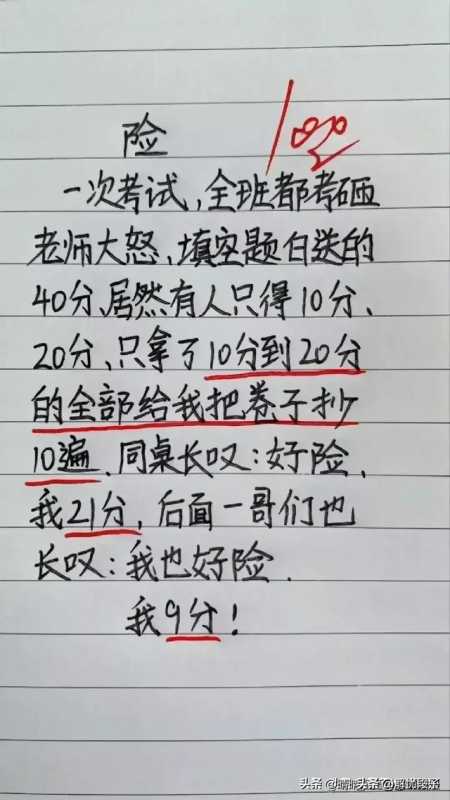 险
100
一次考试,全班都考砸
老师大怒,填空题白送的
40分,居然有人只得10分、
20分,只拿了10分到20分
的全部给我把卷子抄
10遍.同桌长叹:好险,
我21分,后面一哥们也
长叹:我也好险.
我9分!